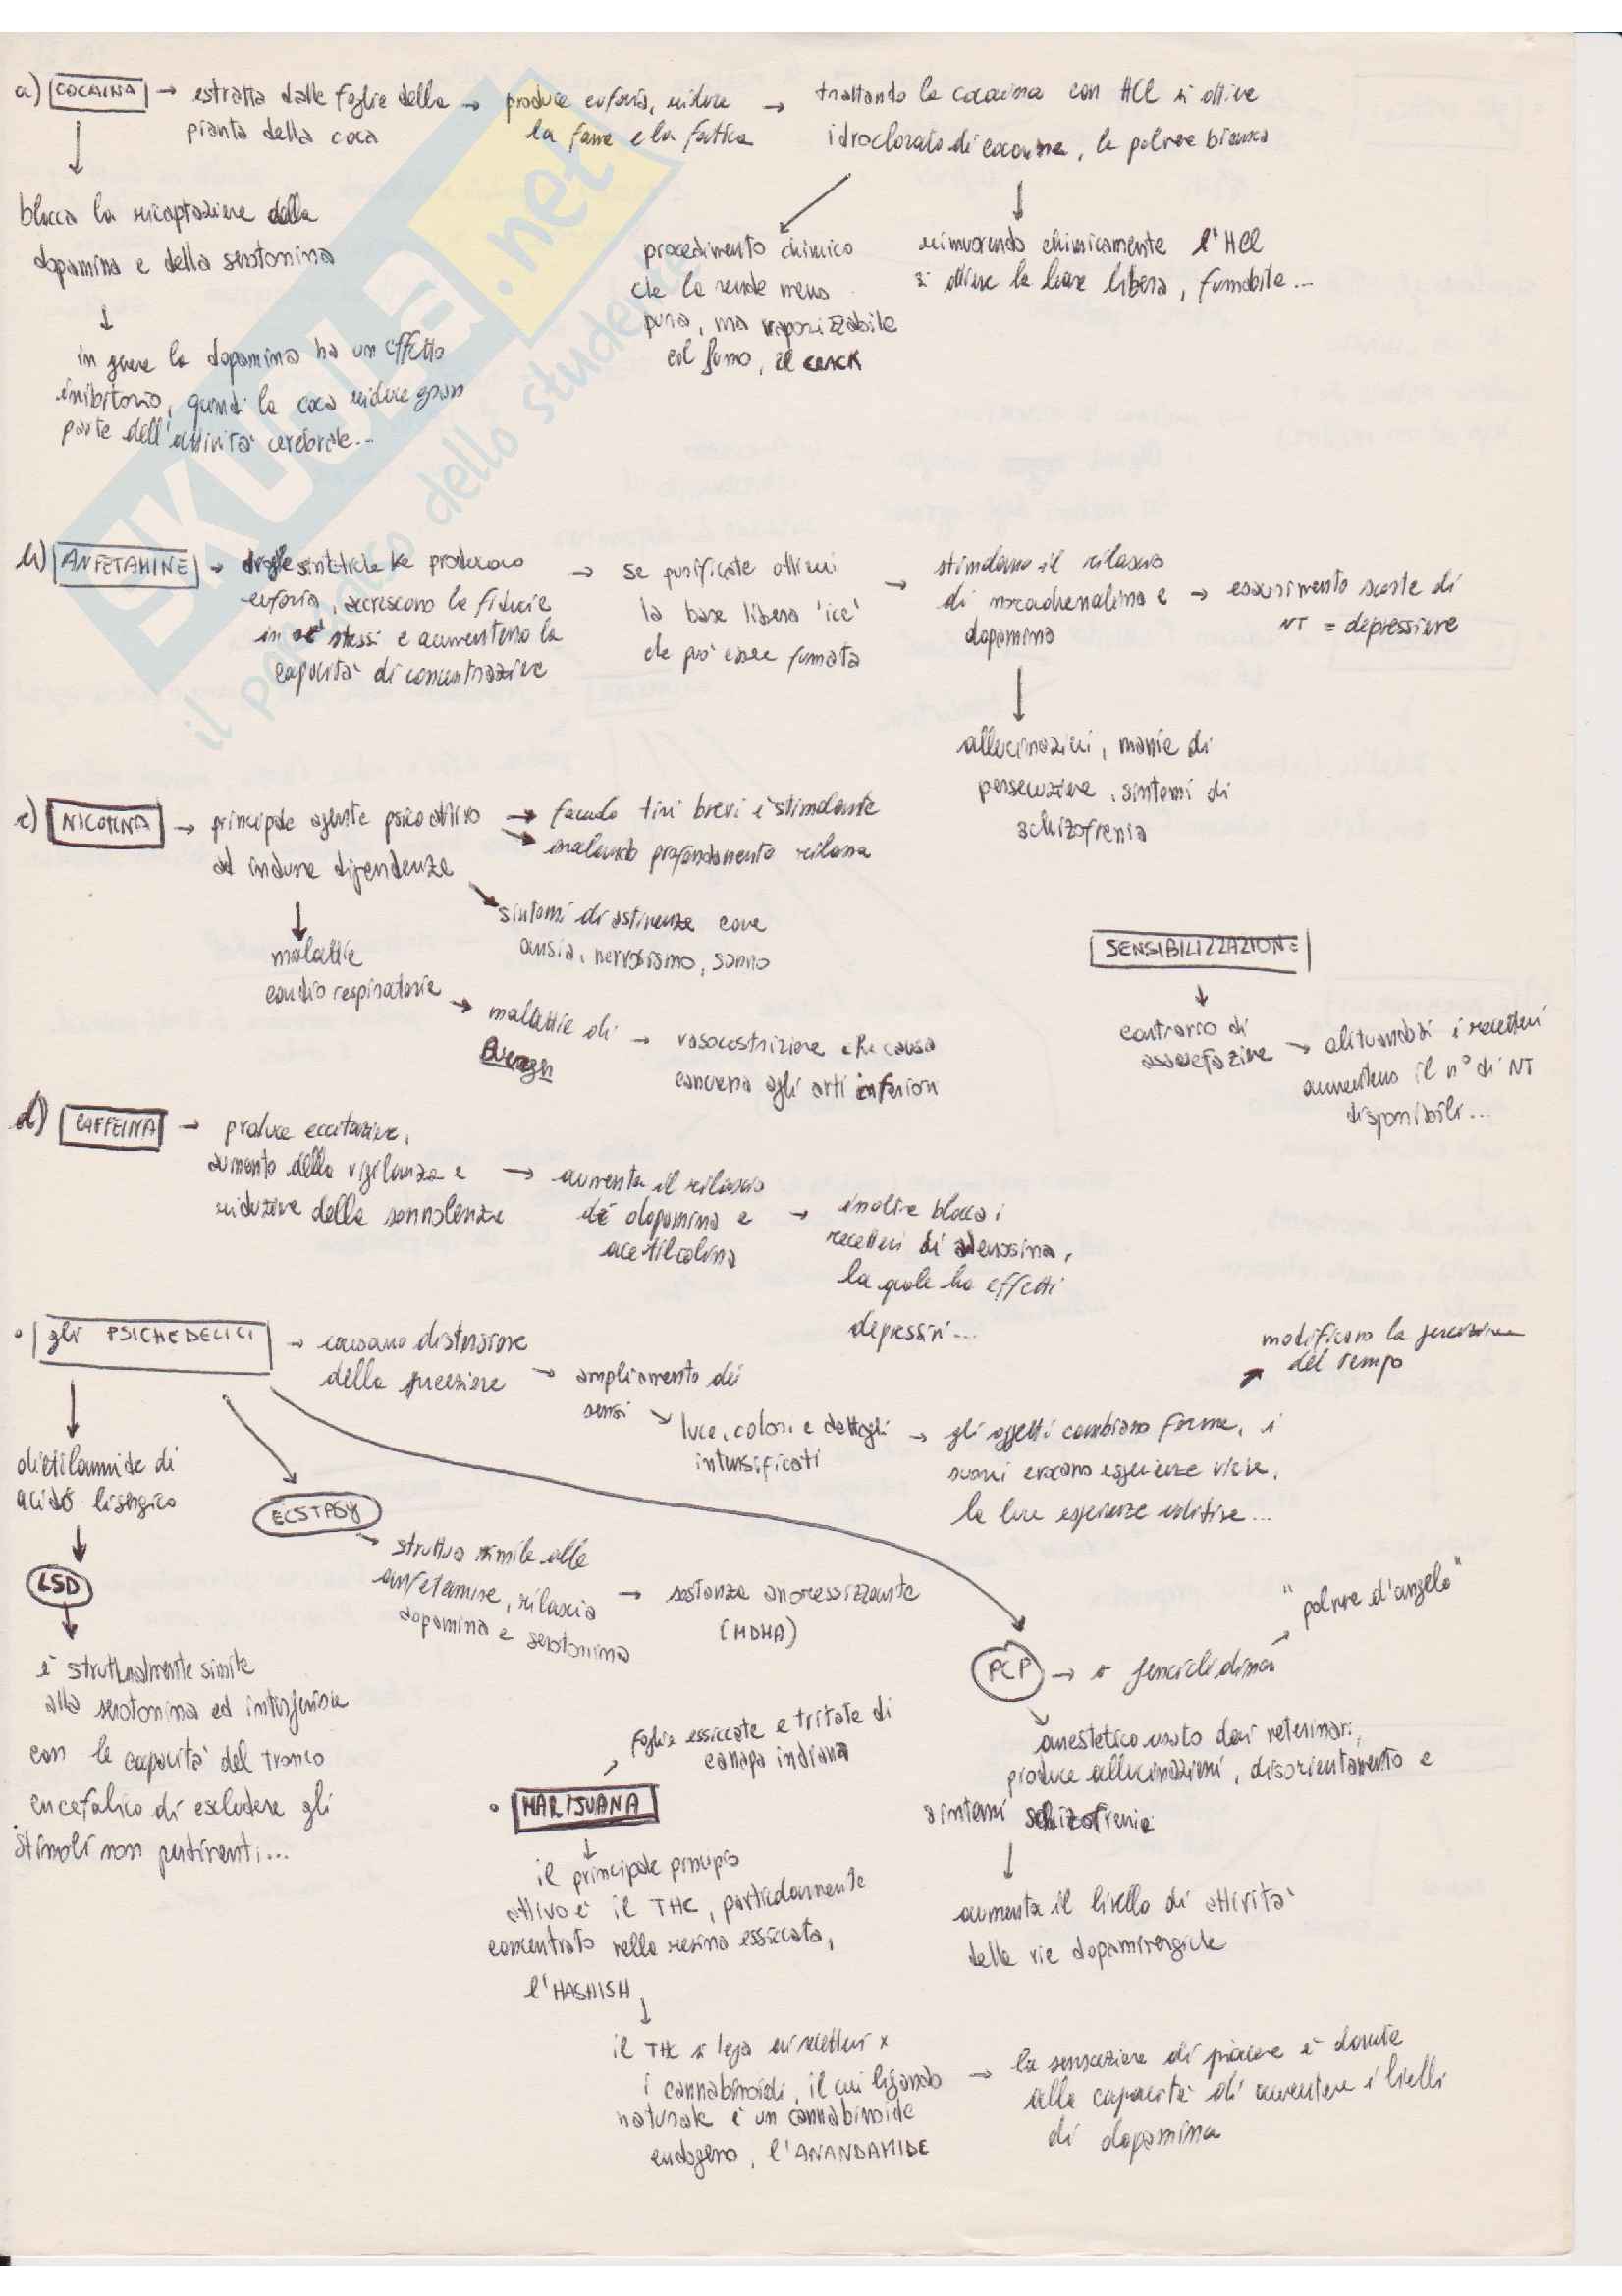 a) COCAINA → estratta dalle foglie della
pianta della coca
→ produce euforia, riduce
la fame e la fatica
→ trattando la cocaina con HCl si ottiene
idroclorato di cocaina, la polvere bianca
blocca la ricaptazione della
dopamina e della serotonina
in genere la dopamina ha un effetto
inibitorio, quindi la coca riduce gran
parte dell'attività cerebrale...
procedimento chimico
che la rende meno
pura, ma vaporizzabile
col fumo, il crack
rimuovendo chimicamente l'HCl
si ottiene la base libera, fumabile...
SKUOLA.net
il paradiso dello studente
b) ANFETAMINE → droghe sintetiche ke producono
euforia, accrescono la fiducia
in sé stessi e aumentano la
capacità di concentrazione
→ se purificate ottieni
la base libera 'ice'
che può essere fumata
→ stimolano il rilascio
di noradrenalina e
dopamina
→ esaurimento scorte di
NT = depressione
allucinazioni, manie di
persecuzione, sintomi di
schizofrenia
c) NICOTINA → principale agente psicoattivo
ad indurre dipendenza
→ facendo tiri brevi è stimolante
→ inalando profondamente rilassa
sintomi di astinenza come
ansia, nervosismo, sonno
malattie
cardio respiratorie
→ malattie di
Buerger
→ vasocostrizione che causa
cancrena agli arti inferiori
SENSIBILIZZAZIONE
contrario di
assuefazione
→ alternandosi i recettori
aumentano il n° di NT
disponibili...
d) CAFFEINA → produce eccitazione,
aumento della vigilanza e
riduzione della sonnolenza
→ aumenta il rilascio
di dopamina e
acetilcolina
→ inoltre blocca i
recettori di adenosina,
la quale ha effetti
depressivi...
• gli PSICHEDELICI → causano distorsione
della percezione
→ ampliamento dei
sensi
luce, colori e dettagli
intensificati
→ gli oggetti cambiano forma, i
suoni evocano esperienze visive,
la luce esperienze uditive...
modificano la percezione
del tempo
dietilammide di
acido lisergico
LSD
è strutturalmente simile
alla serotonina ed interferisce
con la capacità del tronco
encefalico di escludere gli
stimoli non pertinenti...
ECSTASY
struttura simile alle
anfetamine, rilascia
dopamina e serotonina
→ sostanza anoressizzante
(MDMA)
PCP → o fenciclidina
"polvere d'angelo"
anestetico usato dai veterinari,
produce allucinazioni, disorientamento e
sintomi schizofrenici
aumenta il livello di attività
delle vie dopaminergiche
• MARIJUANA
foglie essiccate e tritate di
canapa indiana
il principale principio
attivo è il THC, particolarmente
concentrato nella resina essiccata,
l'HASHISH
il THC si lega ai recettori x
i cannabinoidi, il cui ligando
naturale è un cannabinoide
endogeno, l'ANANDAMIDE
→ la sensazione di piacere è dovuta
alla capacità di aumentare i livelli
di dopamina